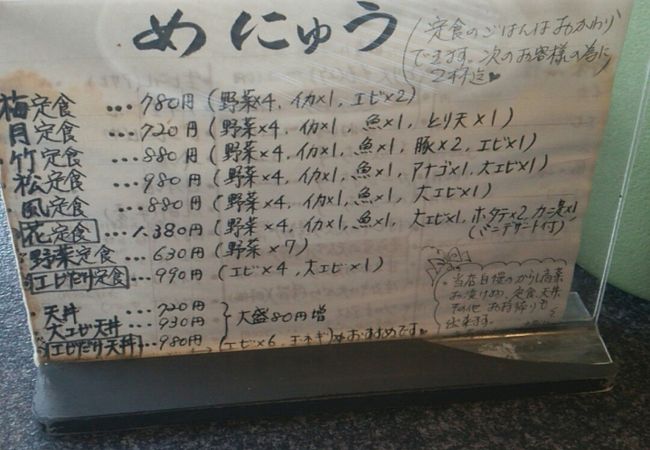 めにゅう
(定食のごはんはおかわり
できます。次のお客様の為に
2杯迄♥
梅定食 ･･･780円(野菜×4, イカ×1, エビ×2)
月定食 ･･･720円(野菜×4, イカ×1, 魚×1, とり天×1)
竹定食 ･･･880円(野菜×4, イカ×1, 魚×1, 豚×2, エビ×1)
松定食 ･･･980円(野菜×4, イカ×1, 魚×1, アナゴ×1, 大エビ×1)
風定食 ･･･880円(野菜×4, イカ×1, 魚×1, 大エビ×1)
花定食 ･･･1,380円(野菜×4, イカ×1, 魚×1, 大エビ×1, ホタテ×2, カニ足×1)
(ミニデザート付)
野菜定食 ･･･630円(野菜×7)
エビだけ定食 ･･･990円(エビ×4, 大エビ×1)
当店自慢のからし高菜
お漬けもの、定食、天丼、
その他 お持ち帰りも
出来ます。
天丼 ･･･720円
大エビ天丼 ･･･930円 } 大盛80円増
エビだけ天丼 ･･･980円 (エビ×6, 玉ネギ) おすすめです♥